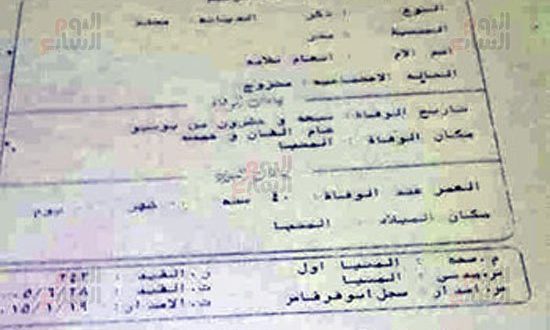 النوع : ذكر الديانة :
الجنسية : مصر
اسم الام : انعام
الحالة الاجتماعية : متزوج
بيانات الوفاة
تاريخ الوفاة : سبعة و عشرون من يونيو
عام الفان و خمسة
مكان الوفاة : المنيا
العمر عند الوفاة : ٤٠ سنه ٠٠ شهر ٠٠ يوم
مكان الميلاد : المنيا
م.صحة : المنيا اول ر.القيد : ٢٤٣
س.مدنى : المنيا ت.القيد : ٠٥/٦/٢٨
م.اصدار : سجل ابوقرقاص ت.الاصدار : ١٥/١/١٩
اليوم السابع